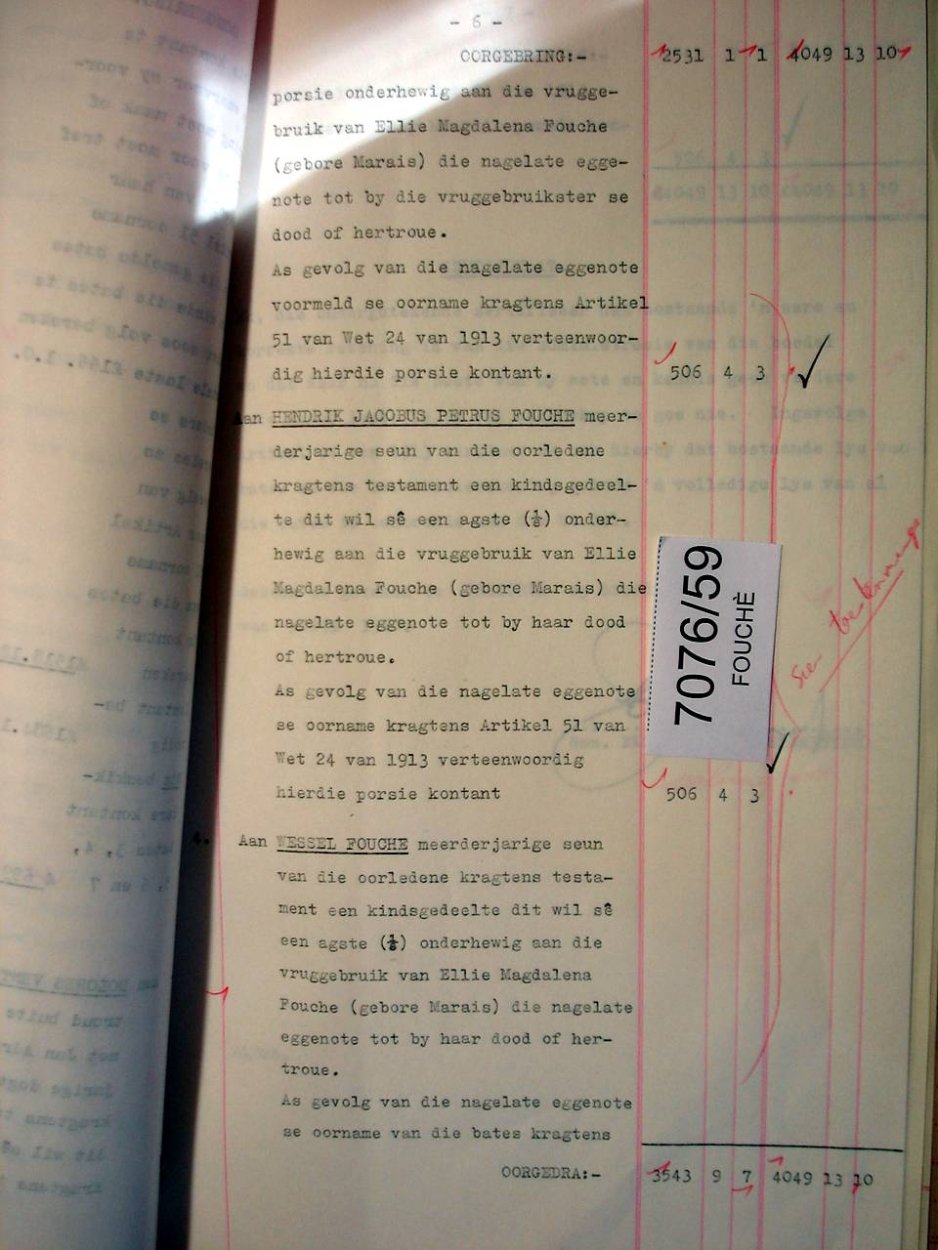 - 6 -
OORGEBRING:- 2531 1 1 4049 13 10
porsie onderhewig aan die vrugge-
bruik van Ellie Magdalena Fouche
(gebore Marais) die nagelate egge-
note tot by die vruggebruikster se
dood of hertroue.
As gevolg van die nagelate eggenote
voormeld se oorname kragtens Artikel
51 van Wet 24 van 1913 verteenwoor-
dig hierdie porsie kontant. 506 4 3
Aan HENDRIK JACOBUS PETRUS FOUCHE meer-
derjarige seun van die oorledene
kragtens testament een kindsgedeel-
te dit wil sê een agste (⅛) onder-
hewig aan die vruggebruik van Ellie
Magdalena Fouche (gebore Marais) die
nagelate eggenote tot by haar dood
of hertroue.
As gevolg van die nagelate eggenote
se oorname kragtens Artikel 51 van
Wet 24 van 1913 verteenwoordig
hierdie porsie kontant 506 4 3
7076/59
FOUCHÈ
Sie
4. Aan WESSEL FOUCHE meerderjarige seun
van die oorledene kragtens testa-
ment een kindsgedeelte dit wil sê
een agste (⅛) onderhewig aan die
vruggebruik van Ellie Magdalena
Fouche (gebore Marais) die nagelate
eggenote tot by haar dood of her-
troue.
As gevolg van die nagelate eggenote
se oorname van die bates kragtens
OORGEDRA:- 3543 9 7 4049 13 10